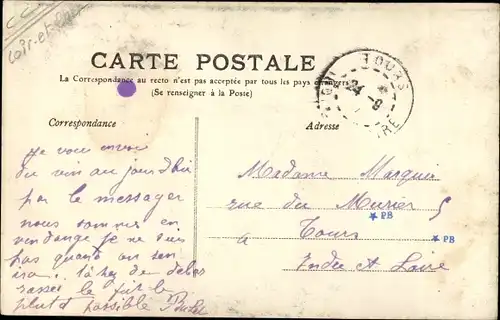 Loir-et-Cher
CARTE POSTALE
La Correspondance au recto n'est pas acceptée par tous les pays étrangers
(Se renseigner à la Poste)
TOURS
24 -9
Correspondance
Adresse
Je vous envoi
du vin aujourdhui
par le messager
nous sommes en
vendange je ne sais
pas quand on sen
ira. tâchez de débar
rasser le fût le
plutôt possible
Madame Marquis
rue du Murier 5
PB
à Tours
PB
Indre et Loire